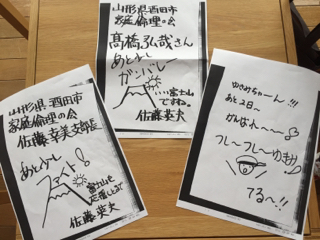 山形県酒田市
家庭倫理の会
髙橋弘哉さん
あと少し
ガンバレー
いい富士山
ですね。
佐藤英夫
山形県酒田市
家庭倫理の会
佐藤幸美支部長
あと少し
富士山も
応援してるで
佐藤英夫
ゆきみちゃーん!!!
あと2日〜
がんばれ〜〜
フレ〜フレ〜ゆきみ
てる〜!!